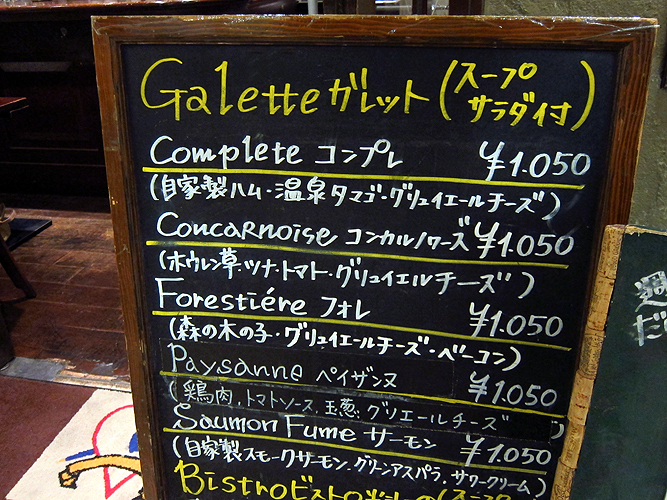 Galette ガレット (スープ
サラダ付)
Complete コンプレ ¥1.050
(自家製ハム・温泉タマゴ・グリュイエールチーズ)
Concarnoise コンカルノワーズ ¥1.050
(ホウレン草・ツナ・トマト・グリュイエールチーズ)
Forestiére フォレ ¥1.050
(森の木の子・グリュイエールチーズ・ベーコン)
Paysanne ペイザンヌ ¥1.050
(鶏肉,トマトソース,玉葱,グリエールチーズ)
Saumon Fume サーモン ¥1.050
(自家製スモークサーモン,グリーンアスパラ,サワークリーム)
Bistro ビストロ
週
だ